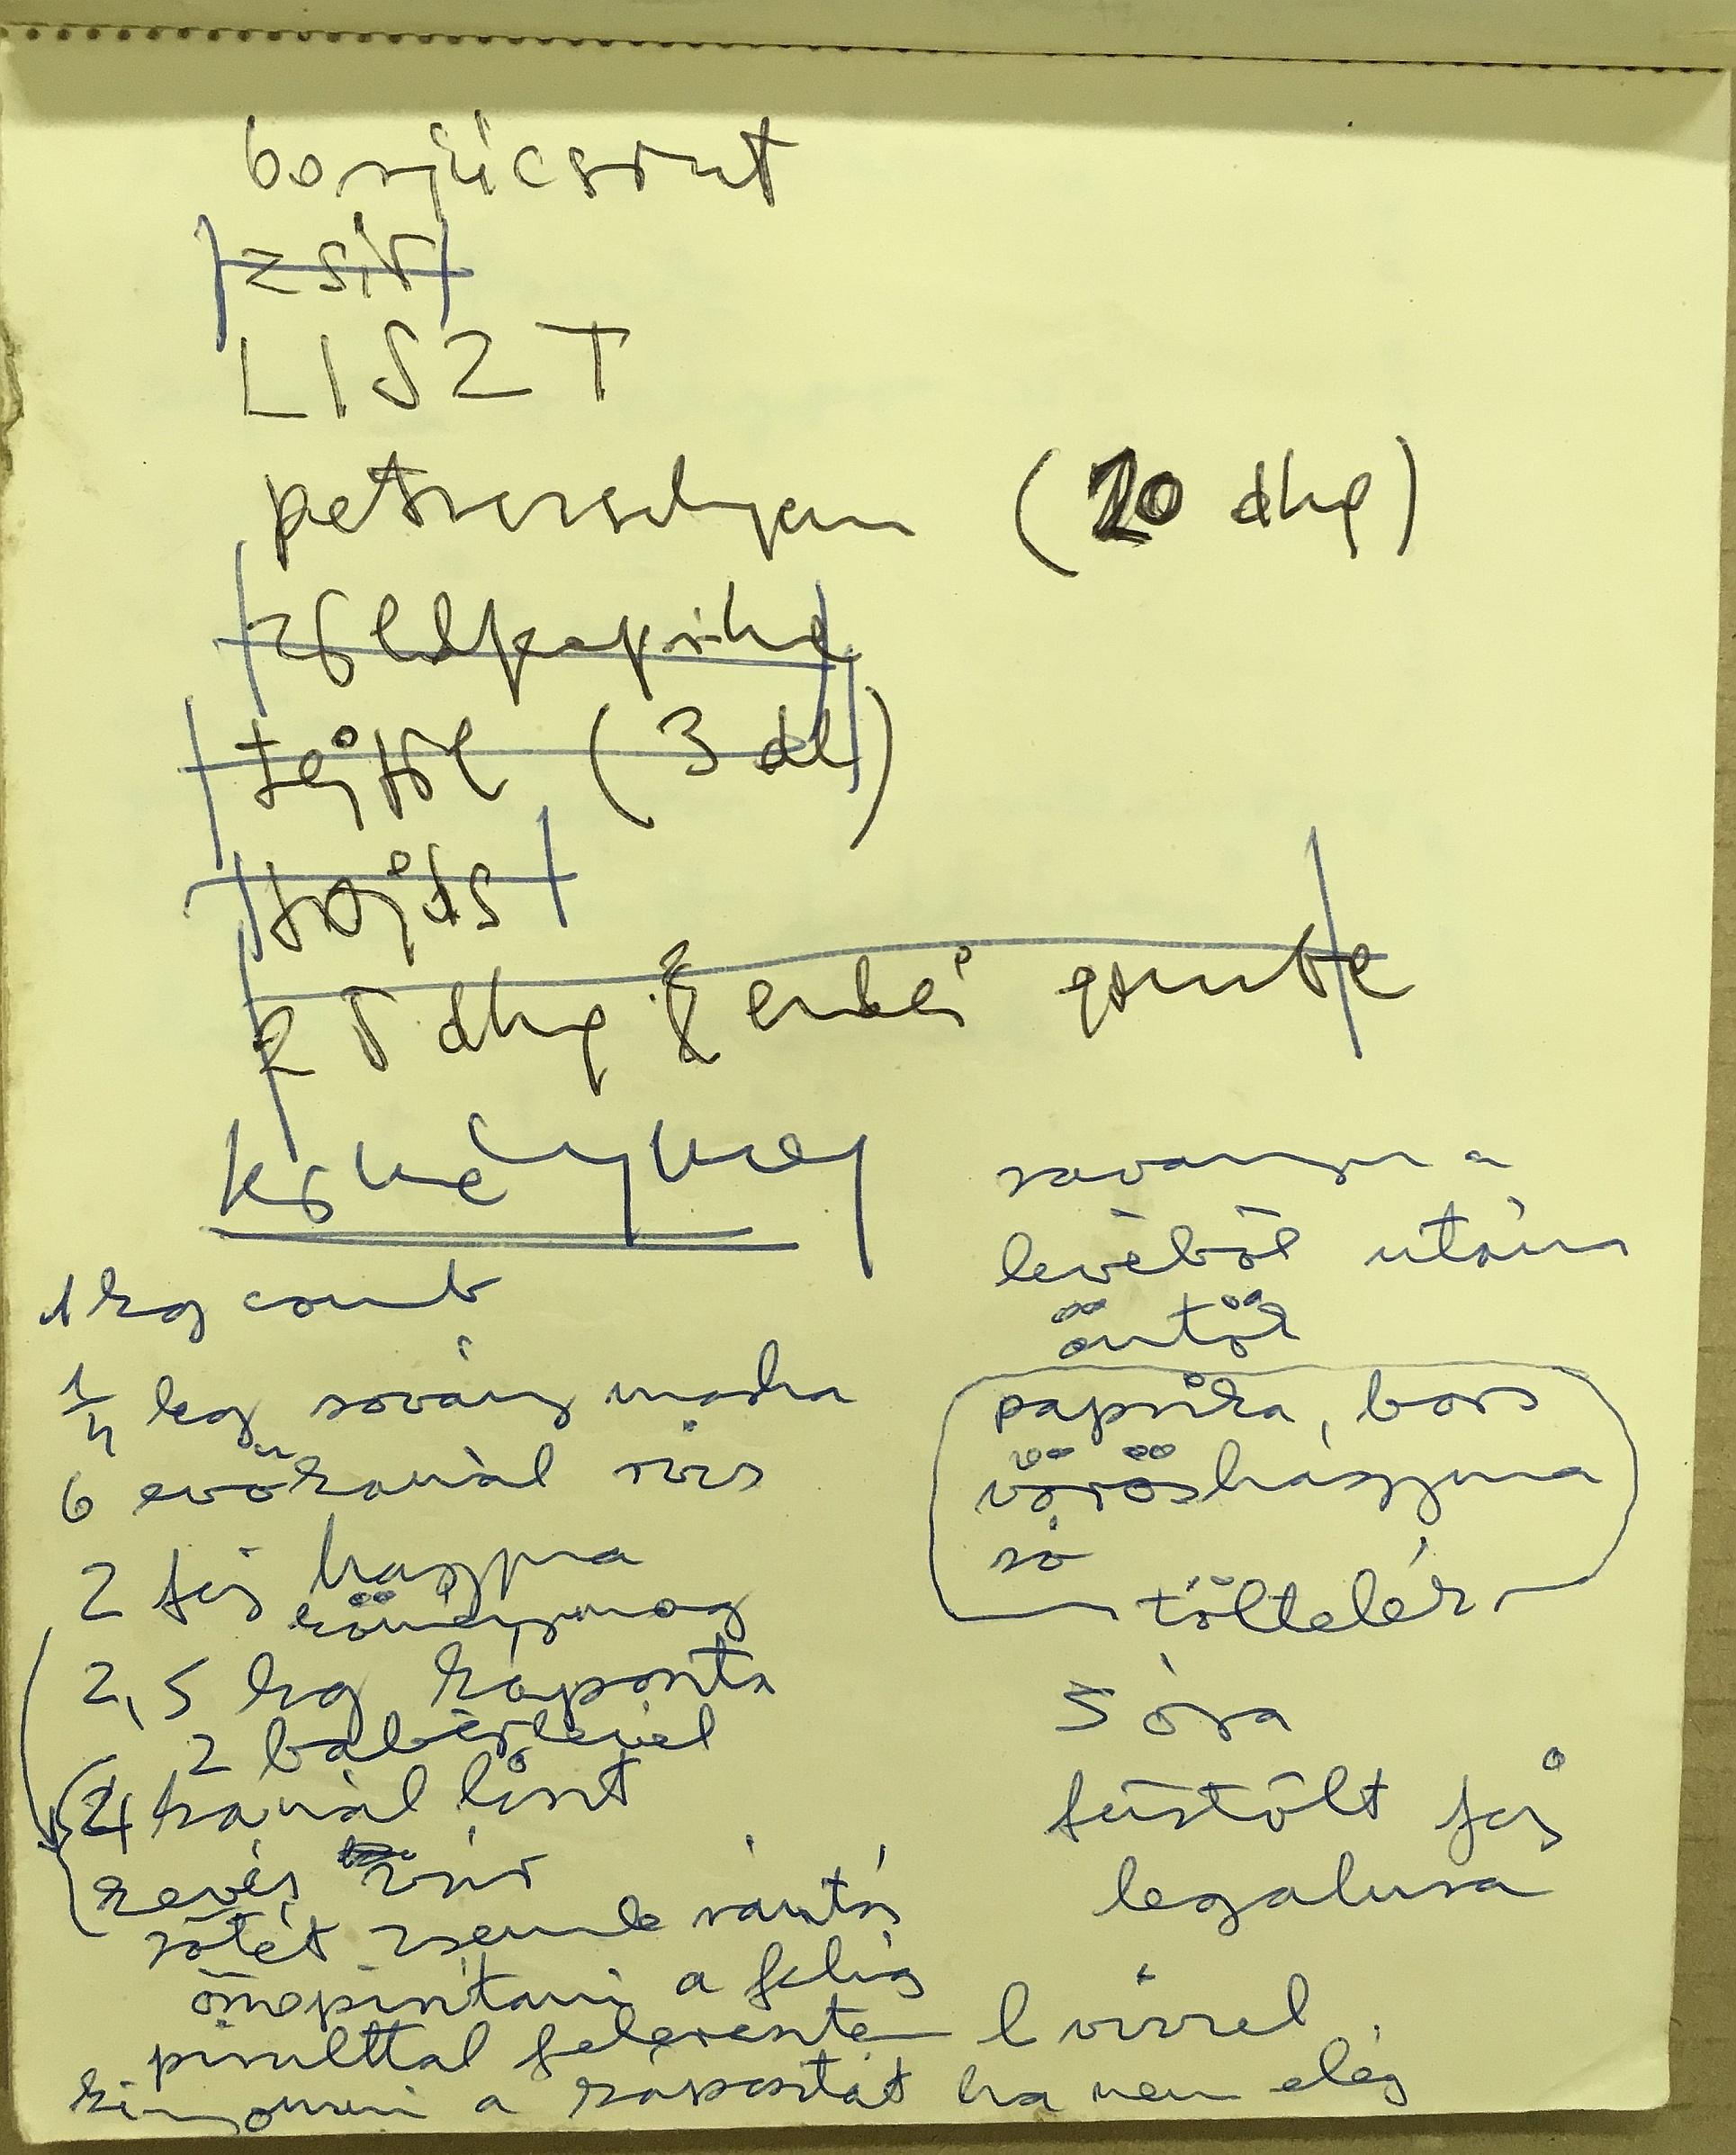 borjúcsont
zsír
LISZT
petrezselyem (20 dkg)
zöldpaprika
tejföl (3 dl)
tojás
25 dkg erdei gomba
köménymag
1 kg comb
1/4 kg sovány marha
6 evőkanál rizs
2 fej hagyma
köménymag
2,5 kg káposzta
2 babérlevél
4 kanál liszt
kevés zsír
sötét zsemle rántás
összepirítani a félig
pirulttal felereszteni l vízzel
kinyomni a káposztát ha nem elég
savanyu a
levéből utána
öntök
paprika, bors
vöröshagyma
só
töltelék
5 óra
füstölt fej
legalusa